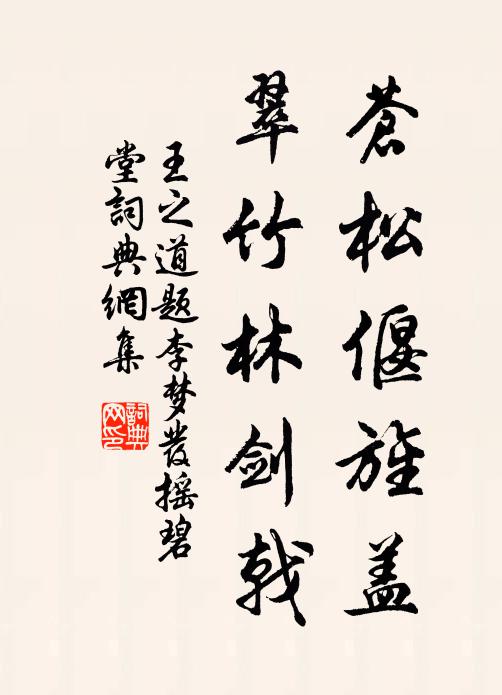 蒼松偃旌盖
翠竹林剑戟
王之道题李梦发摇碧
堂詞典網集
詞典
网印